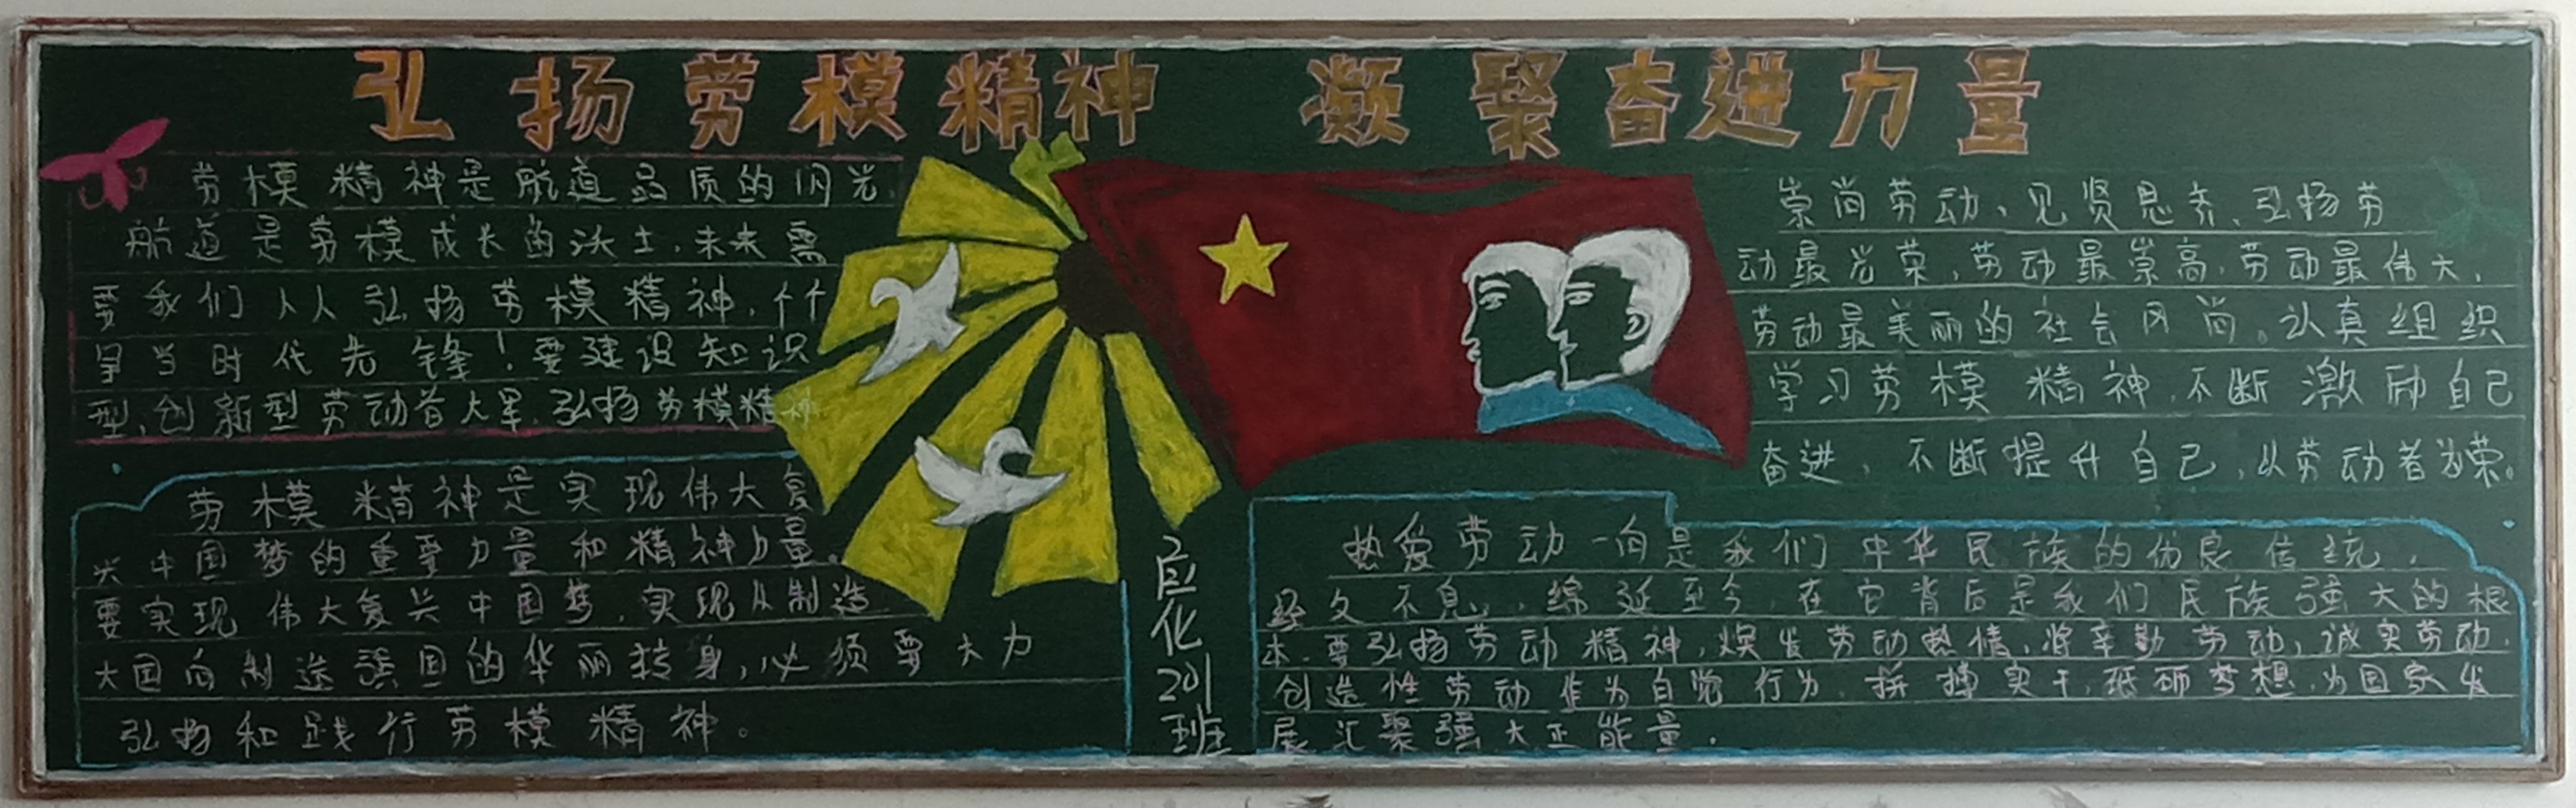 弘扬劳模精神 凝聚奋进力量
劳模精神是航道品质的闪光,
航道是劳模成长的沃土,未来需
要我们人人弘扬劳模精神,个个
争当时代先锋!要建设知识
型,创新型劳动者大军,弘扬劳模精神
劳模精神是实现伟大复
兴中国梦的重要力量和精神力量。
要实现伟大复兴中国梦,实现从制造
大国向制造强国的华丽转身,必须要大力
弘扬和践行劳模精神。
应化201班
崇尚劳动、见贤思齐、弘扬劳
动最光荣,劳动最崇高,劳动最伟大,
劳动最美丽的社会风尚。认真组织
学习劳模精神,不断激励自己
奋进,不断提升自己,从劳动者为荣。
热爱劳动一向是我们中华民族的优良传统,
经久不息,绵延至今,在它背后是我们民族强大的根
本.要弘扬劳动精神,焕发劳动热情,将辛勤劳动,诚实劳动,
创造性劳动作为自觉行为,拼搏实干,砥砺梦想,为国家发
展汇聚强大正能量.